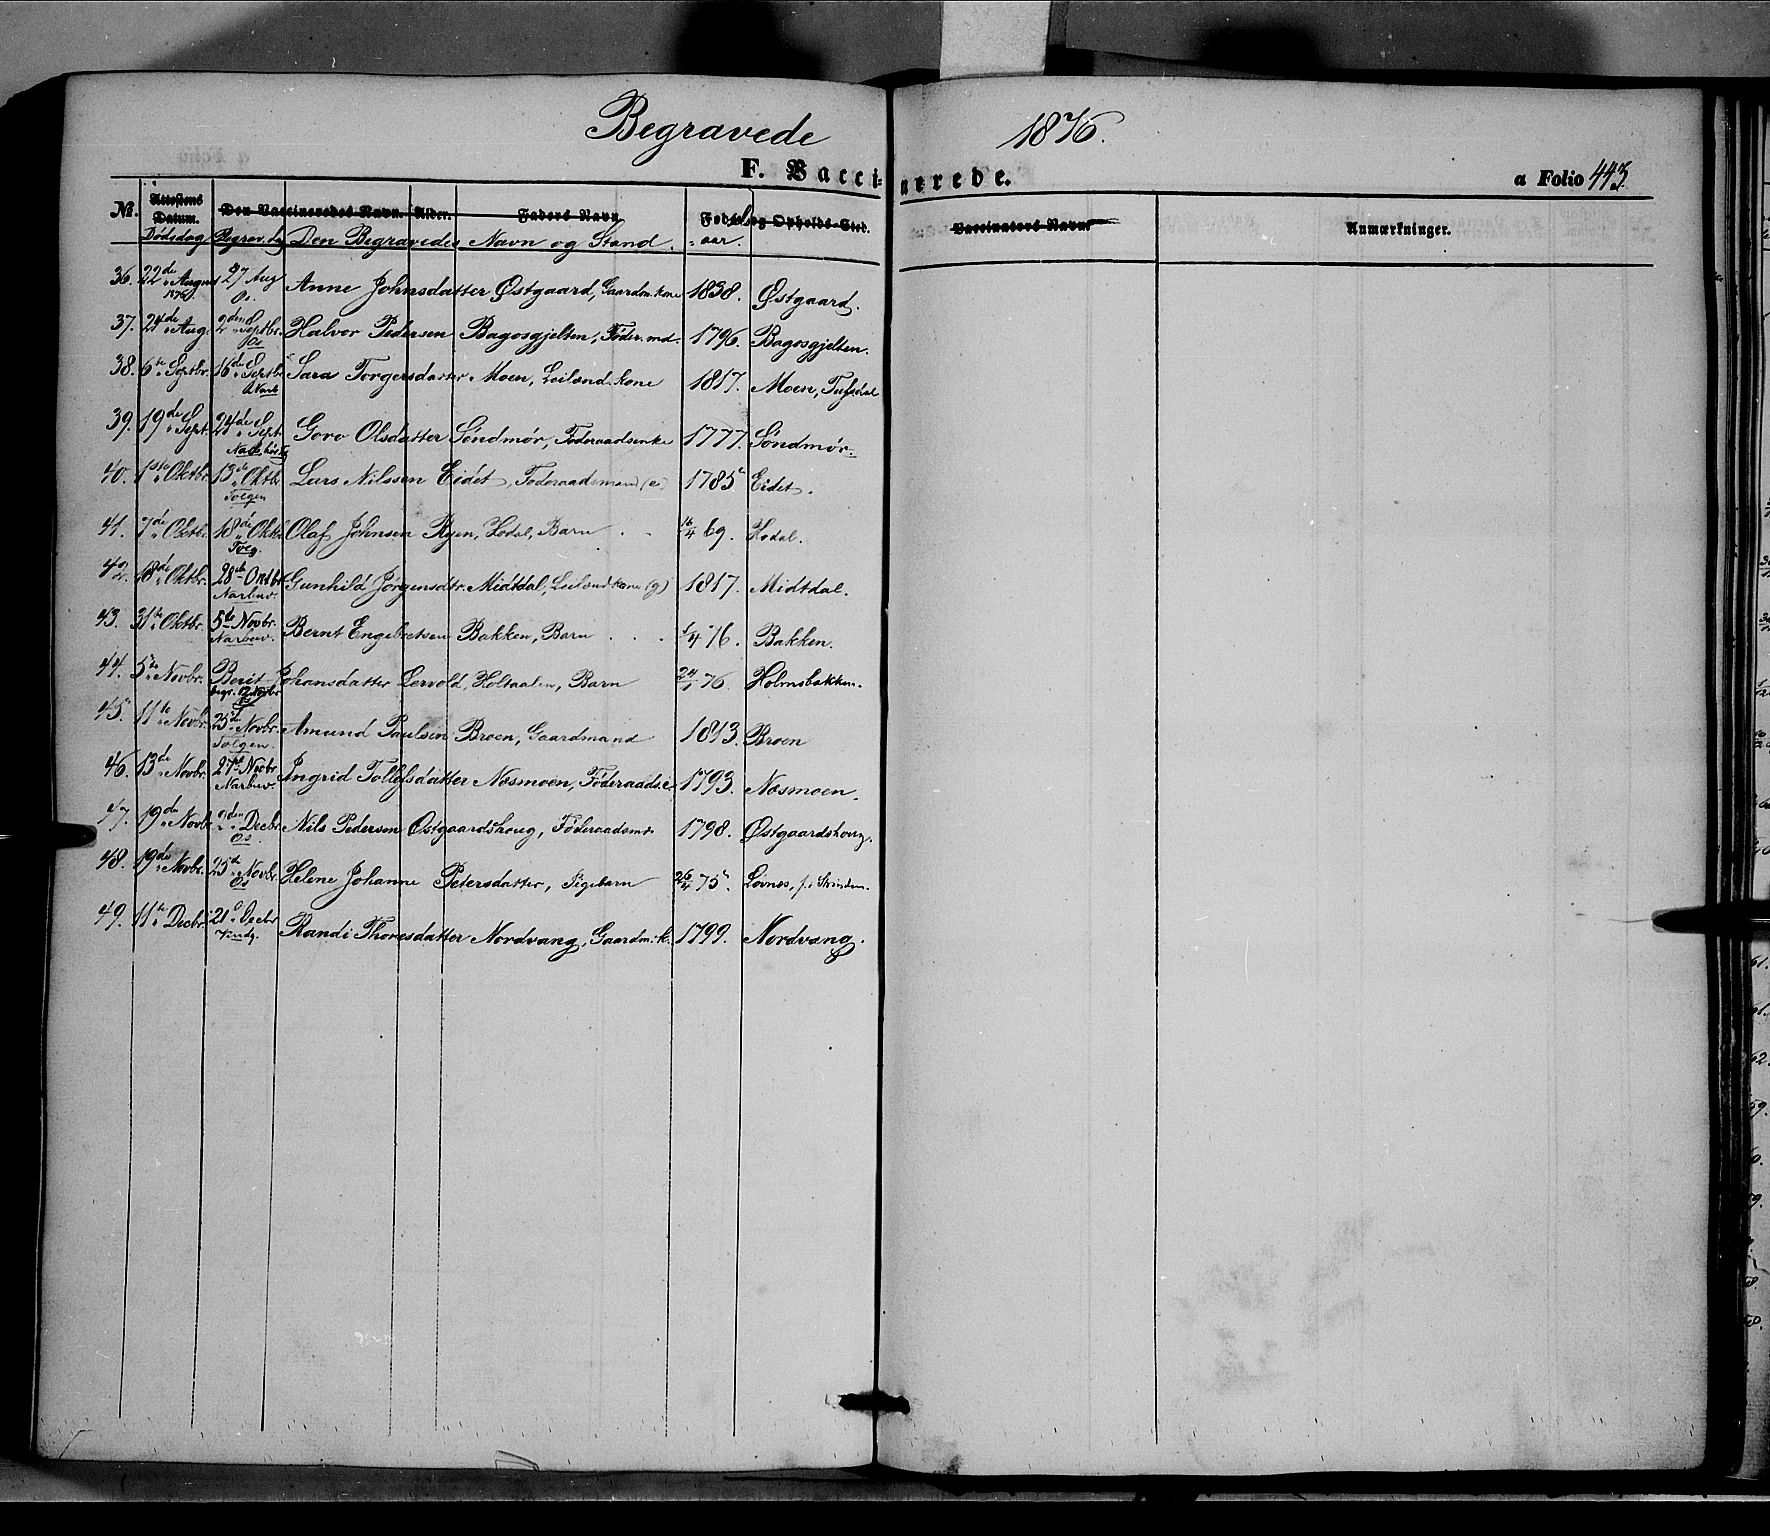 Begravede 1876.
F. Vaccinerede. a Folio 443.
No. Attestens Datum. Den Vaccineredes Navn. Alder. Faders Navn Føde- og Opholds-Sted. Vaccinators Navn. Anmærkninger.
Dødsdag Begrav.dg Den Begravedes Navn og Stand. aar.
36. 22de August 1876. 27 Aug Os. Anne Johnsdatter Østgaard, Gaardm.kone 1838. Østgaard.
37. 24de Aug. 2den Septbr. Os Halvor Pedersen Bagosgjelten, Føder.md. 1796. Bagosgjelten.
38. 6te Septbr. 16de Septbr. Sara Torgersdatter Moen, Leilænd.kone 1817. Moen, Tufsdal
39. 19de Sept. 24de Sept. Goro Olsdatter Søndmør, Føderaadsenke 1777. Søndmør.
40. 1ste Oktbr. 13de Oktbr Tolgen Lars Nilssen Eidet, Føderaadsmand (e) 1785 Eidet.
41. 7de Oktbr. 18de Oktb. Tolg. Olaf Johnsen Ryen, Hodal, Barn 16/4 69. Hodal.
42. 18de Oktbr. 28de Oktbr. Narbuv. Gunhild Jørgensdtr. Midtdal, Leilændkone (g) 1817. Midtdal.
43. 31te Oktbr. 5te Novbr. Narbuv. Bernt Engebretsen Bakken, Barn 1/4 76. Bakken.
44. 5te Novbr. Berit Johansdatter Lervold, Holtaalen, Barn 24/1 76. Holmsbakken.
begr. 12 Novbr Os
45. 11te Novbr. 25d Novbr. Tolgen. Amund Paulsen Broen, Gaardmand 1813. Broen
46. 13de Novbr. 27d Novbr Narbuv. Ingrid Tollefsdatter Næsmoen, Føderaads.e 1793. Næsmoen.
47. 19de Novb. 2den Decbr. Os. Nils Pedersen Østgaardshoug, Føderaadsm. 1798. Østgaardshoug.
48. 19de Novbr. 25d Novbr. Os Helene Johanne Petersdatter, Pigebarn 26/4 75. Løvnes, f. i Strinden.
49. 11te Decbr. 21d Decbr Randi Thoresdatter Nordvang, Gaardm.k. 1799. Nordvang.